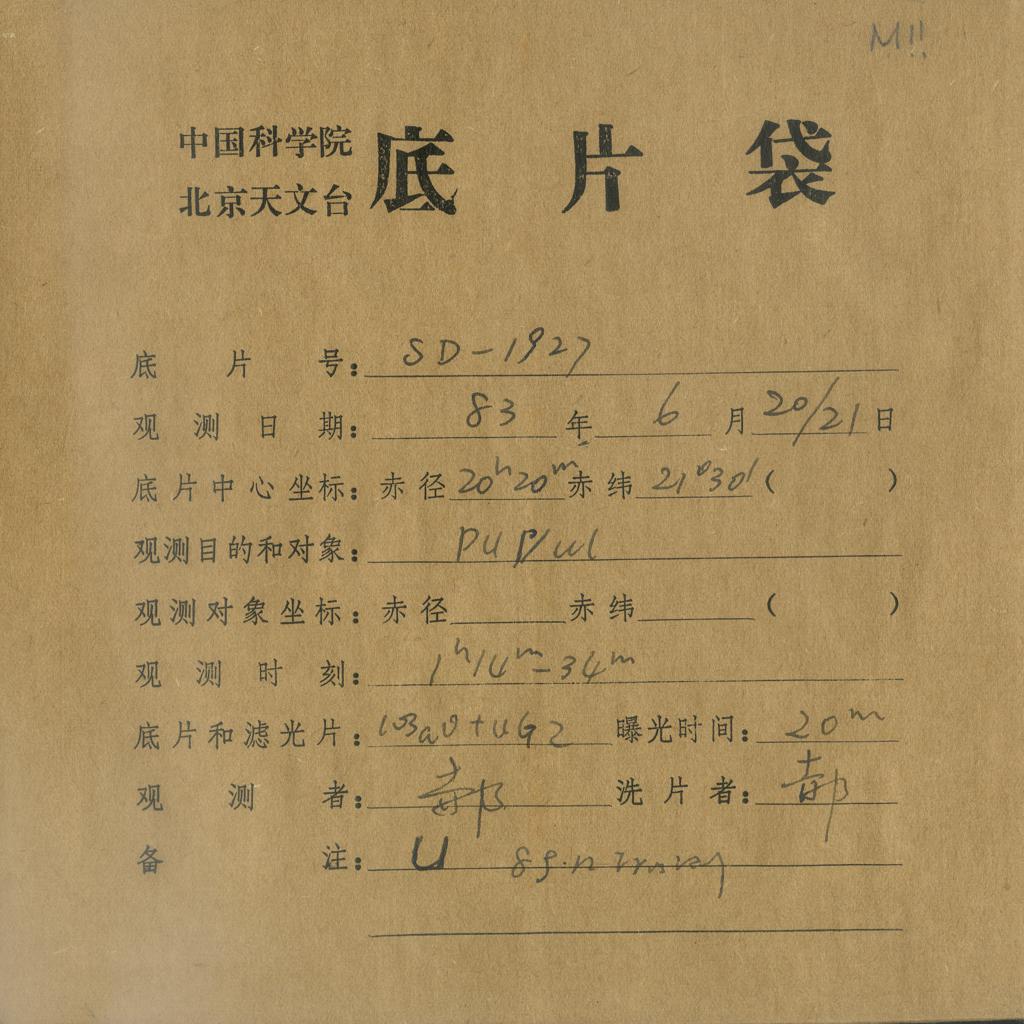 M!!
中国科学院
北京天文台 底片袋
底片号: SD-1927
观测日期: 83年6月20/21日
底片中心坐标: 赤径20h20m赤纬21°30′( )
观测目的和对象:
观测对象坐标: 赤径 赤纬 ( )
观测时刻: 1h14m-34m
底片和滤光片: 103aO+UG2 曝光时间: 20m
观测者: 洗片者:
备注: U